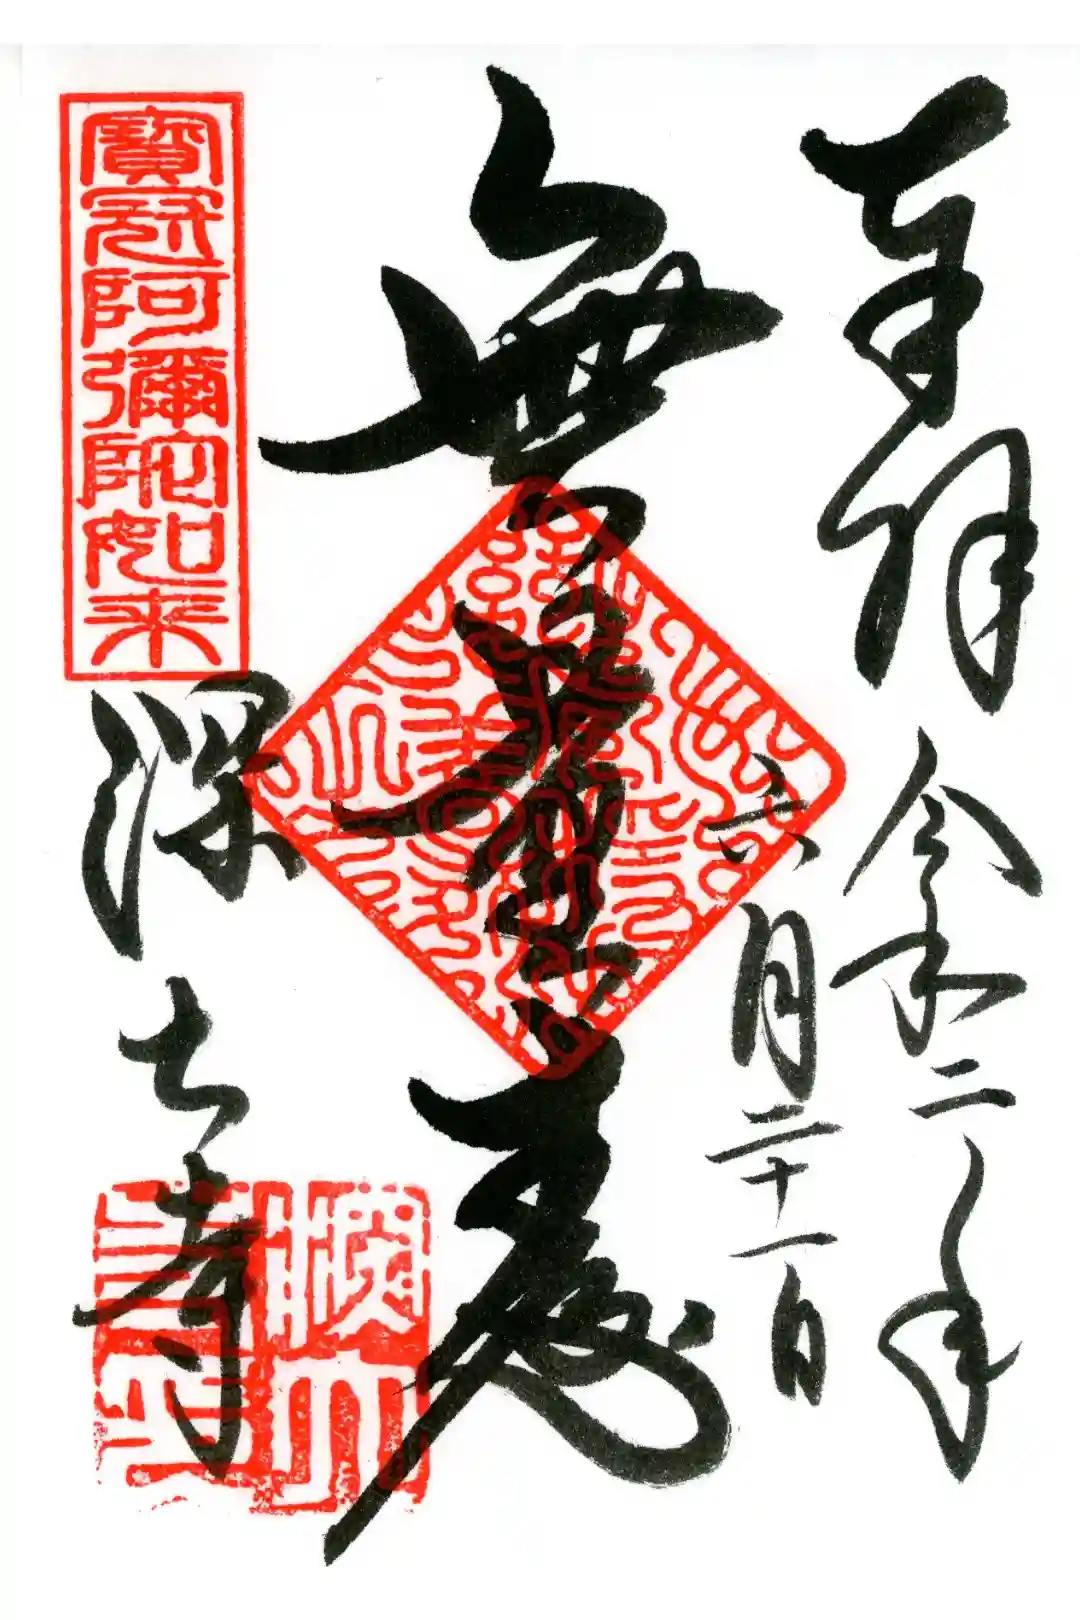 奉拝
令和二年
六月二十一日
無量壽
寶冠阿彌陀如来
深大寺
深大寺印